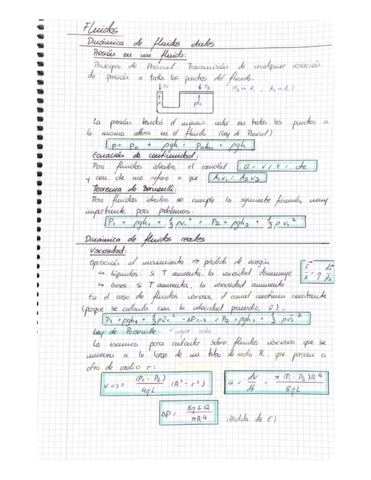 Fluidos
Dinámica de fluidos ideales
Presión en un fluido:
Principio de Pascal: Transmisión de cualquier variación
de presión a todos los puntos del fluido.
La presión tendrá el mismo valor en todos los puntos a
la misma altura en el fluido (Ley de Pascal)
Ecuación de continuidad:
Para fluidos ideales, el caudal
A₁v₁ = A₂v₂
Teorema de Bernouilli:
Para fluidos ideales se cumple la siguiente fórmula, muy
importante para problemas:
P₁ + ρgh₁ + ½ρv₁² = P₂ + ρgh₂ + ½ρv₂²
Dinámica de fluidos reales
Viscosidad:
Oposición al movimiento → pérdida de energía
↳ líquidos: si T aumenta, la viscosidad disminuye
↳ Gases: si T aumenta, la viscosidad aumenta
En el caso de fluidos viscosos, el caudal continúa constante
(porque se calcula con la velocidad promedio, v̄).
Ley de Poiseuille
La usamos para calcular sobre fluidos viscosos que se
mueven a lo largo de un tubo de radio R, que poseen a
otro de radio r:
v(r) = (P₁ - P₂) / 4ηL (R² - r²)
Q = dV/dt = π(P₁ - P₂)R⁴ / 8ηL
ΔP = 8ηLQ / πR⁴ (Pérdida de E)